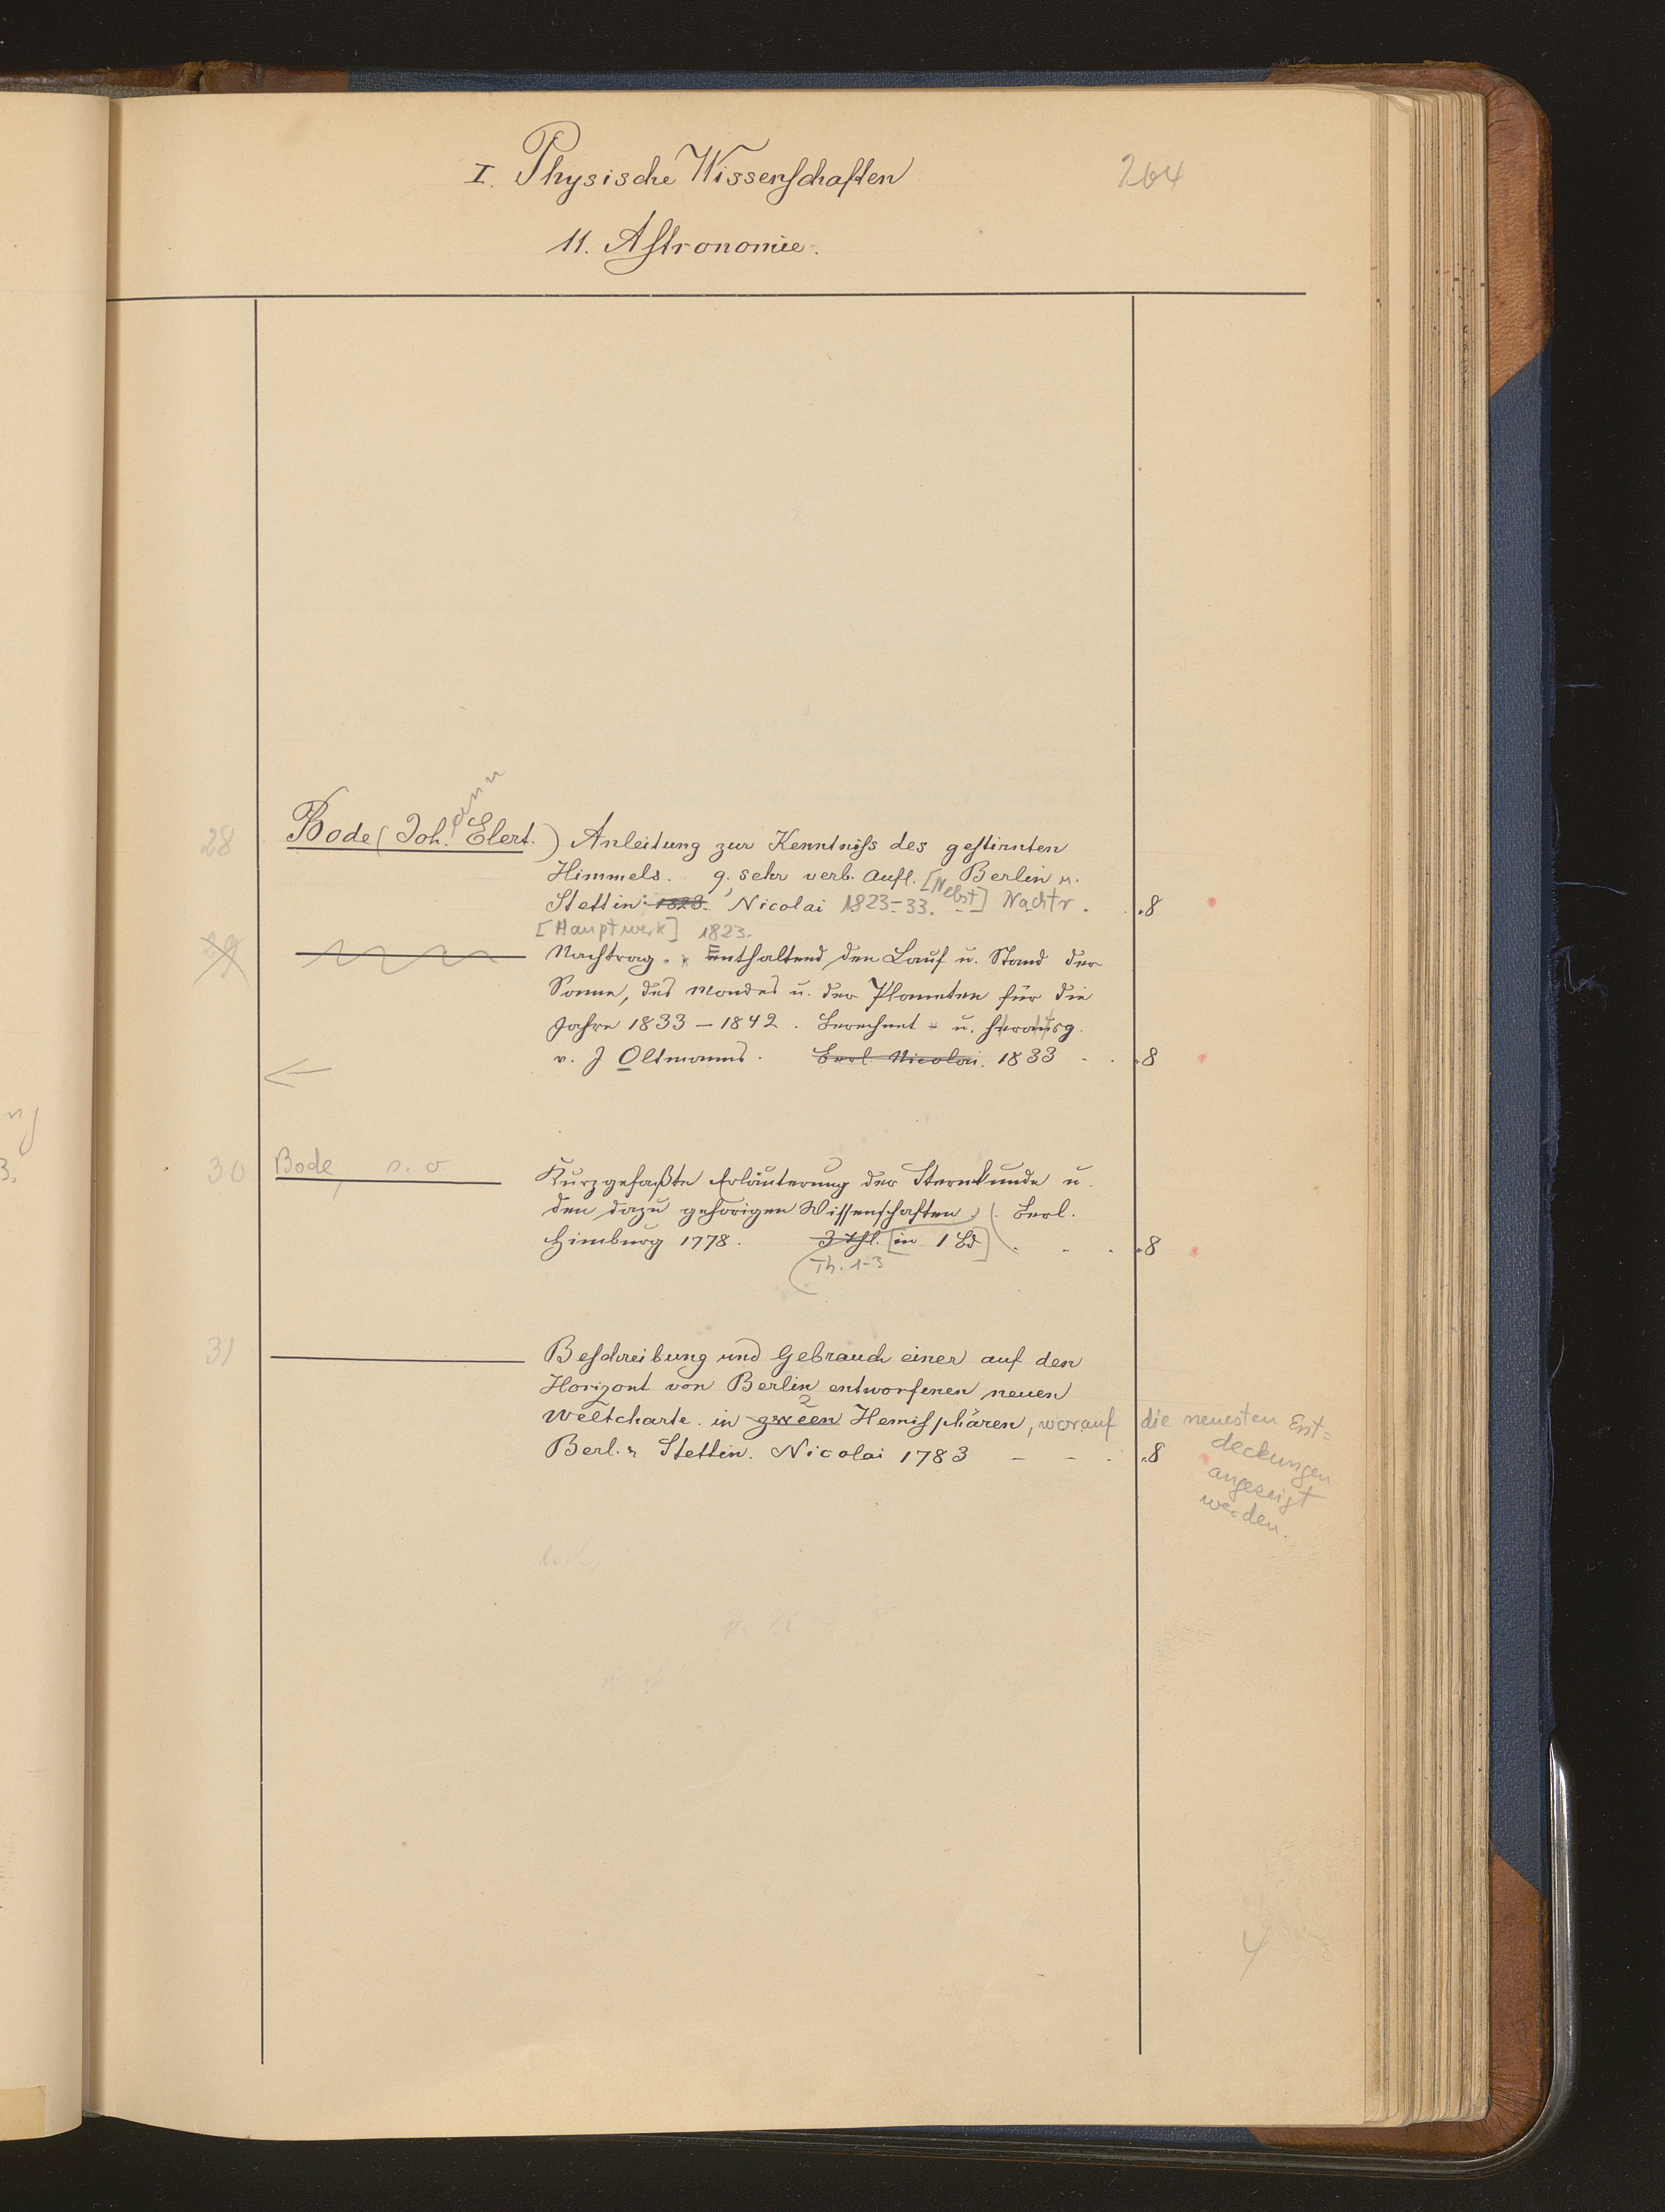 I. Physische Wissenschaften
264
11. Astronomie.
28
Bode (Joh. Elert.) Anleitung zur Kenntniss des gestirnten
Himmels. 9, sehr verb. Aufl. [Nebst] Berlin u.
Stettin: 1823. Nicolai 1823-33. Nachtr. 8
[Hauptwerk] 1823.
29
Nachtrag. Enthaltend den Lauf u. Stand der
Sonne, des Mondes u. der Planeten für die
Jahre 1833 – 1842. Berechnet u. herausg.
v. J Oltmanns. Berl. Nicolai. 1833 8
30
Bode, s. o
Kurzgefaßte Erläuterung der Sternkunde u.
den dazu gehörigen Wissenschaften. Berl.
Himburg 1778. 3 Thl. [in 1 Bd] 8
(Th. 1-3
31
Beschreibung und Gebrauch einer auf den
Horizont von Berlin entworfenen neuen
2
Weltcharte in zween Hemisphären, worauf die neuesten Ent=
deckungen
Berl. u Stettin. Nicolai 1783 - - . 8
angezeigt
werden.
4